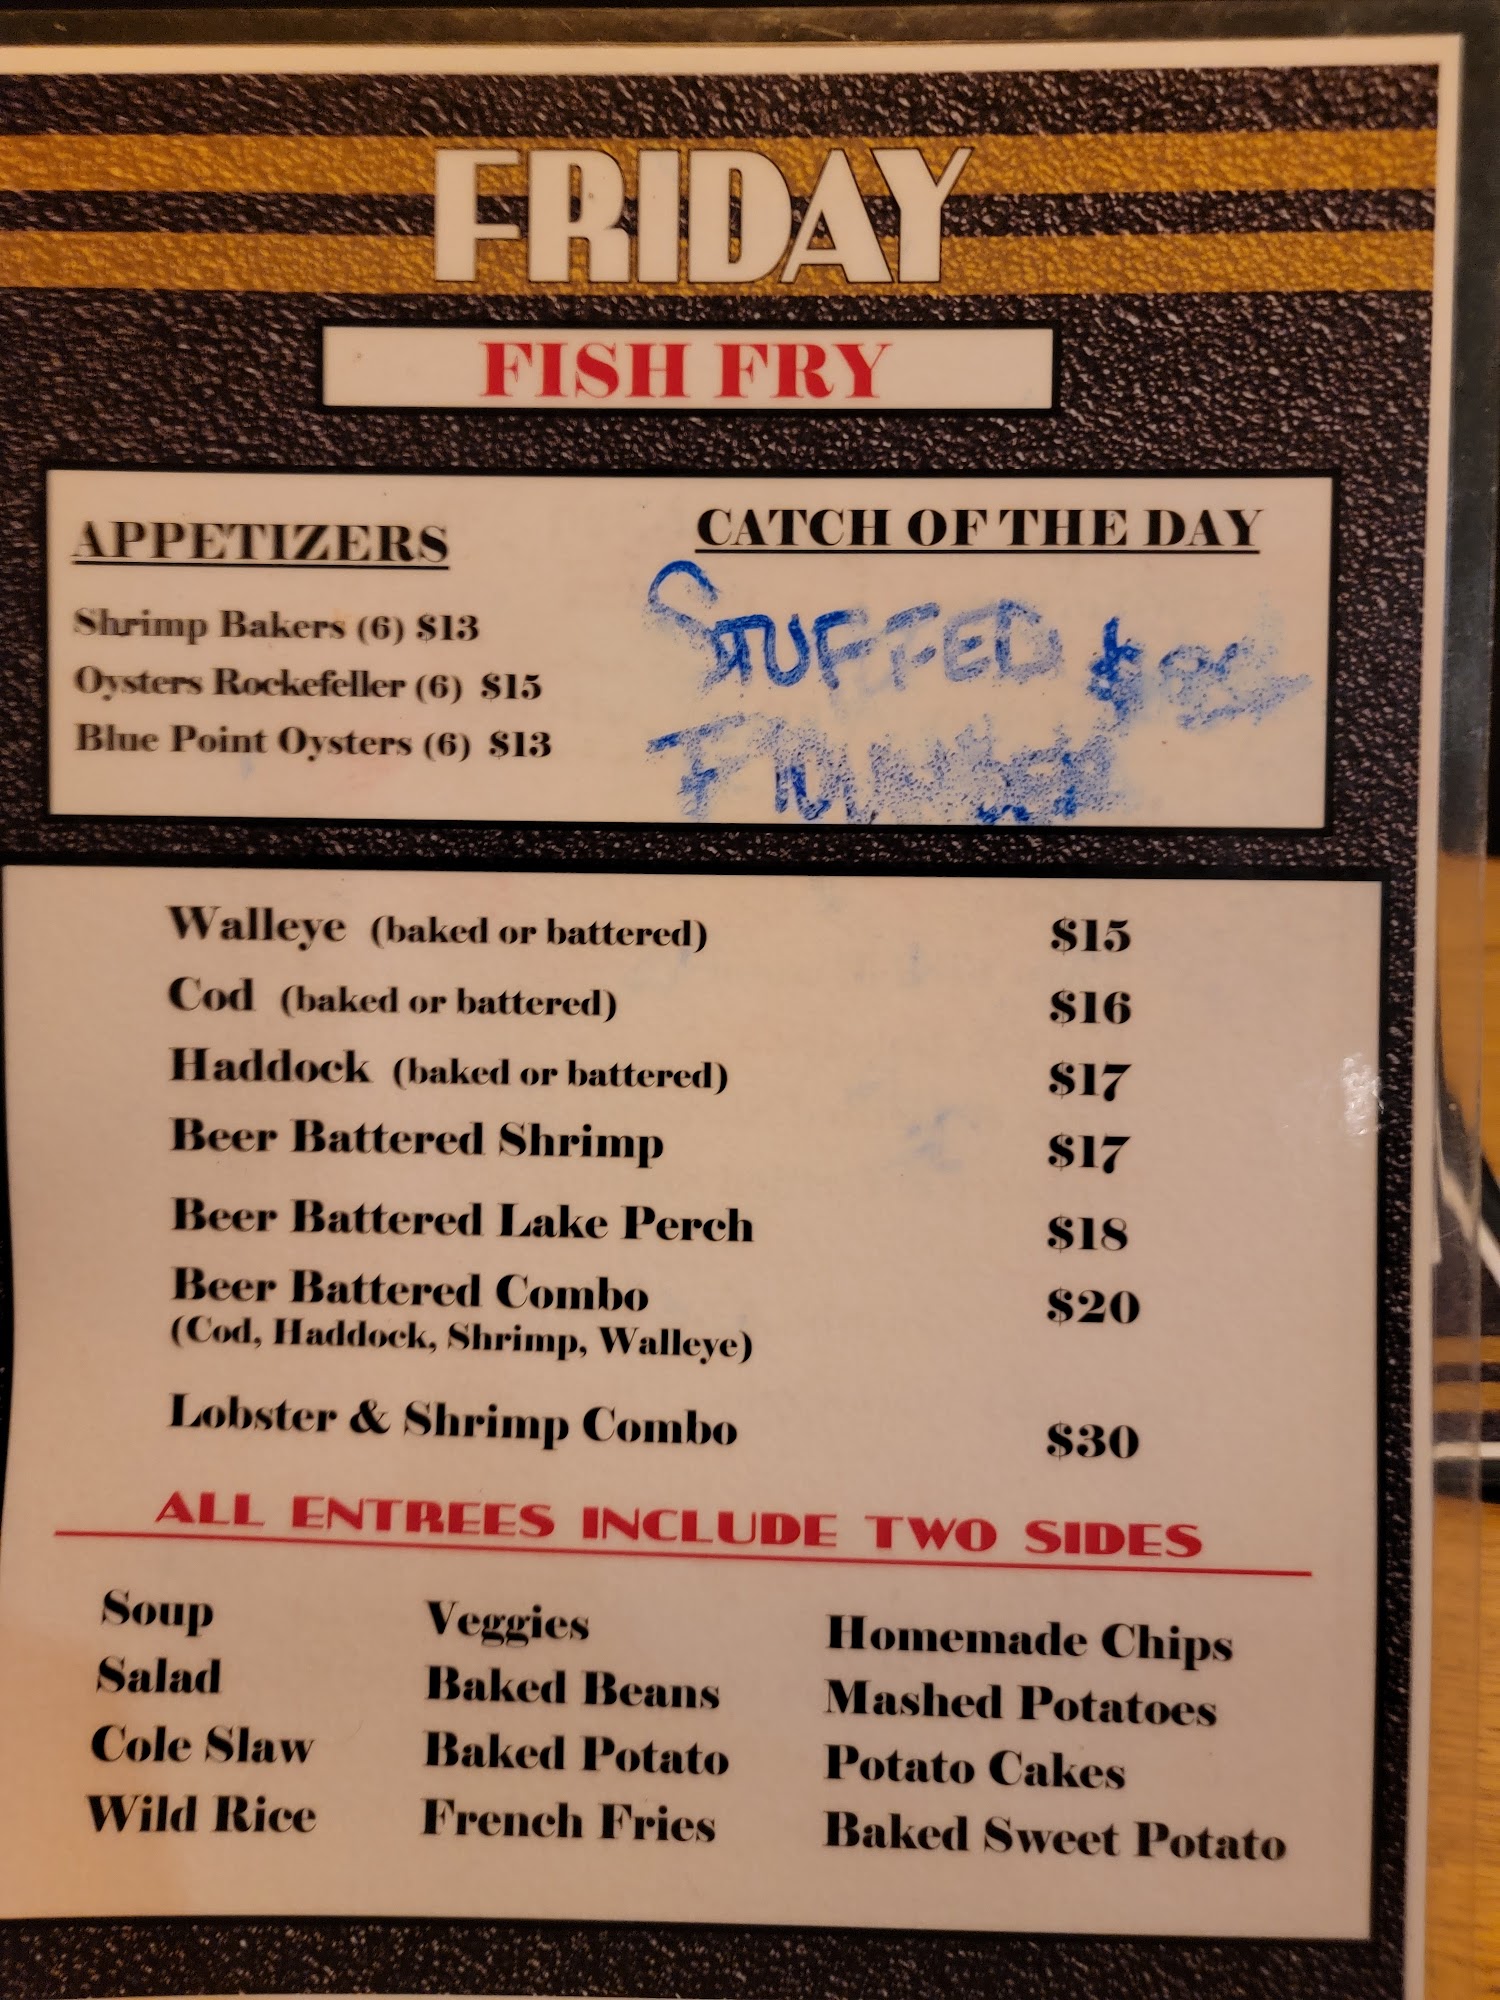 FRIDAY
FISH FRY
APPETIZERS
Shrimp Bakers (6) $13
Oysters Rockefeller (6) $15
Blue Point Oysters (6) $13
CATCH OF THE DAY
STUFFED
Walleye (baked or battered) $15
Cod (baked or battered) $16
Haddock (baked or battered) $17
Beer Battered Shrimp $17
Beer Battered Lake Perch $18
Beer Battered Combo $20
(Cod, Haddock, Shrimp, Walleye)
Lobster & Shrimp Combo $30
ALL ENTREES INCLUDE TWO SIDES
Soup
Salad
Cole Slaw
Wild Rice
Veggies
Baked Beans
Baked Potato
French Fries
Homemade Chips
Mashed Potatoes
Potato Cakes
Baked Sweet Potato